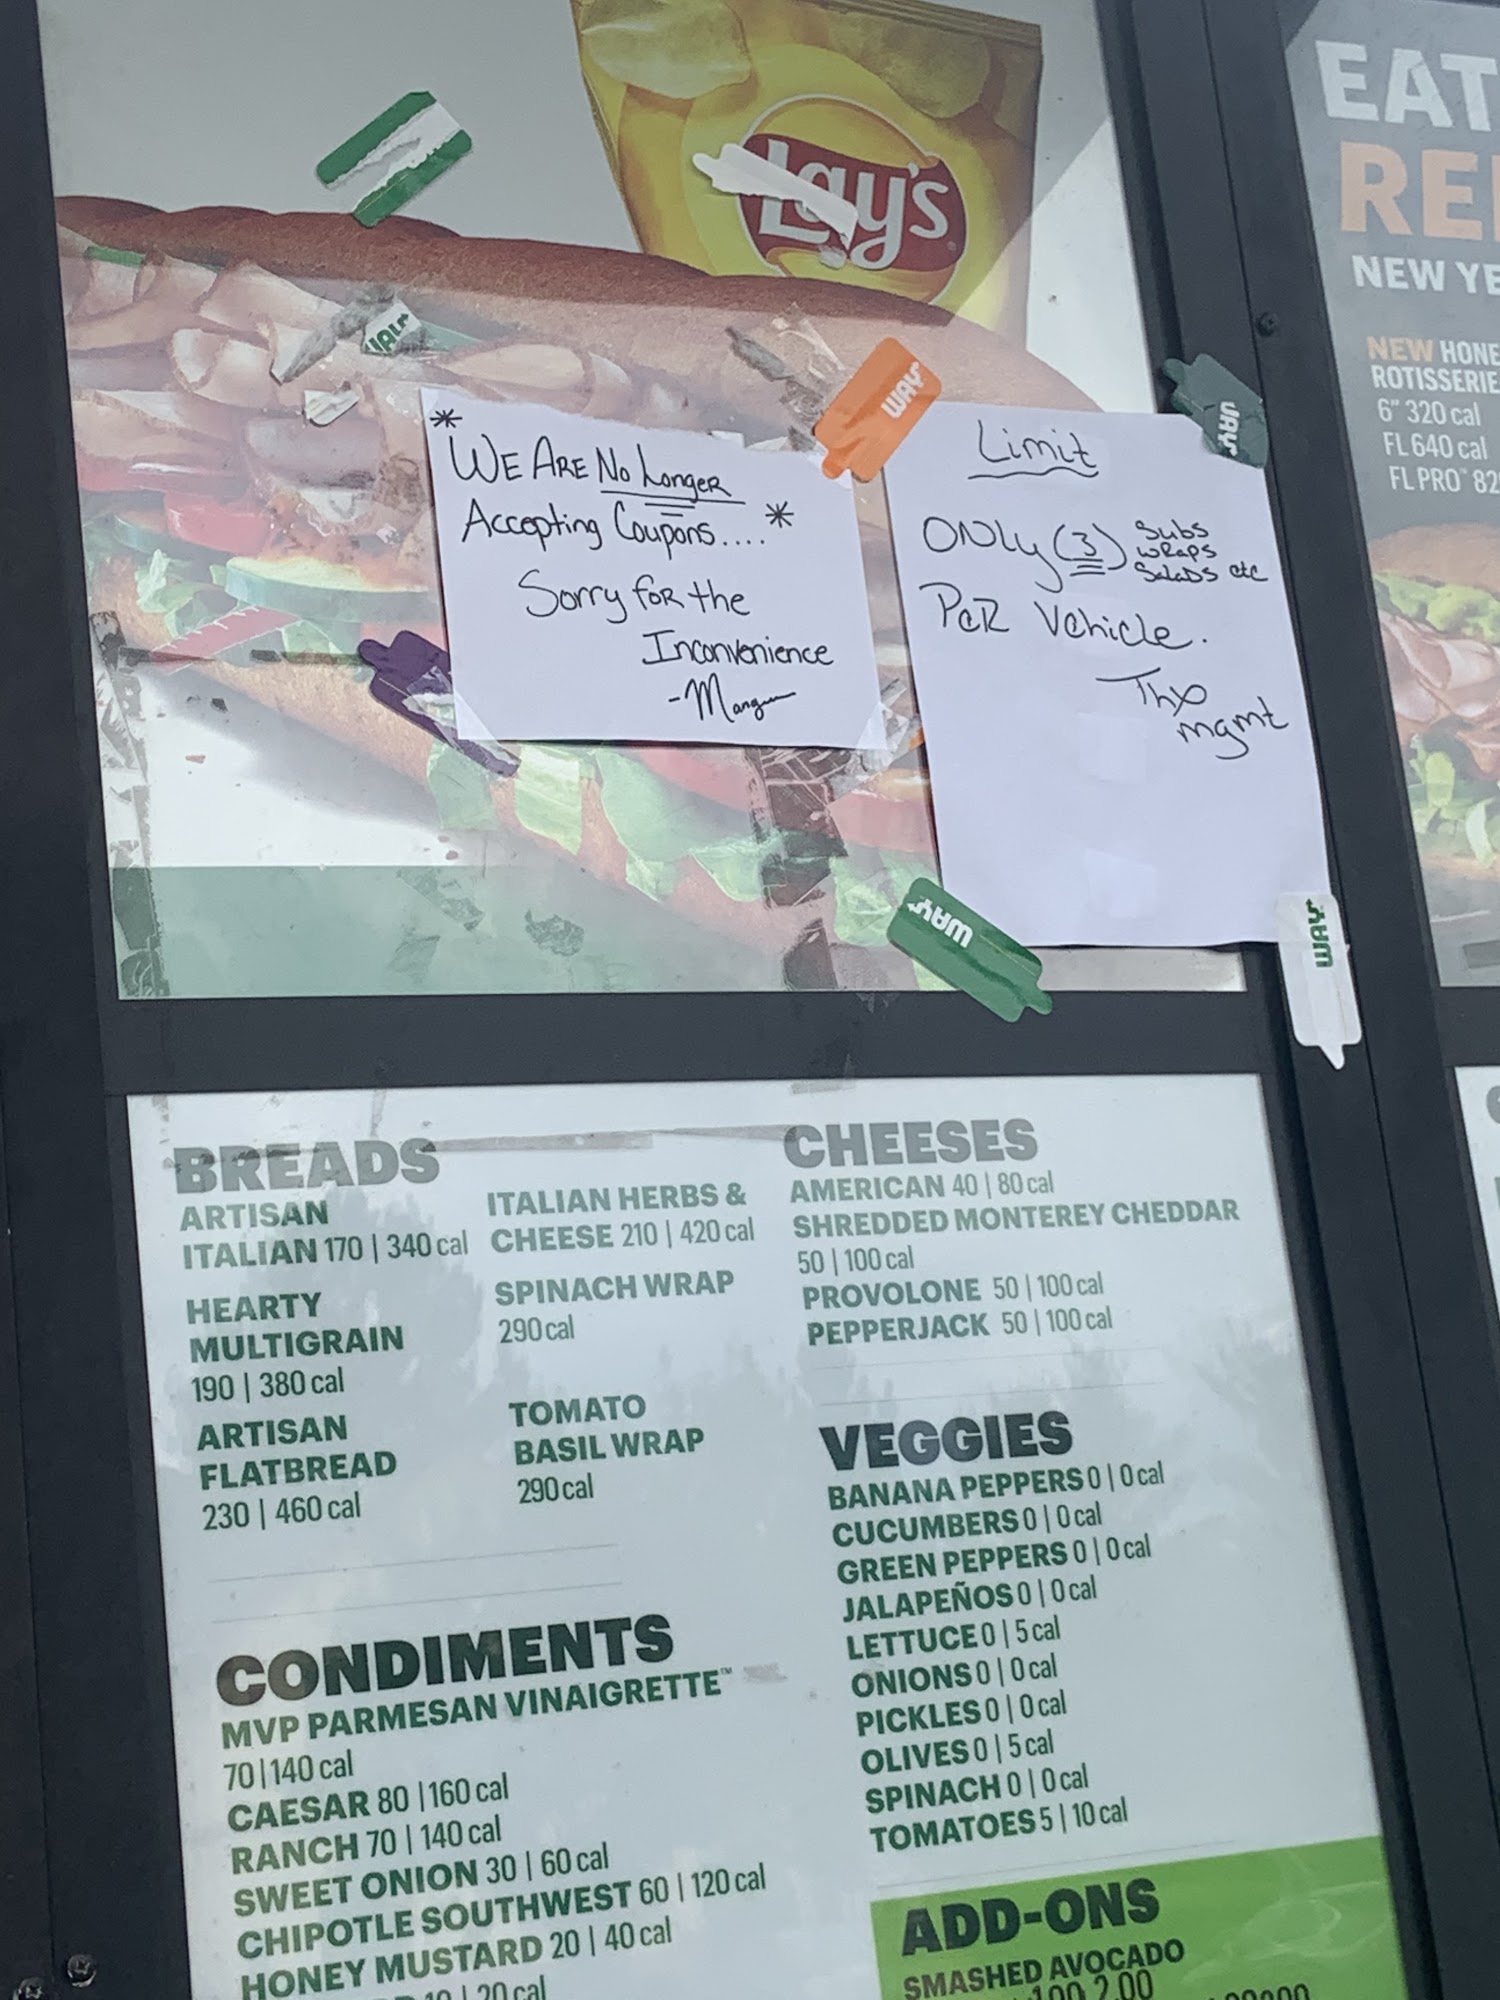 Lay's
EAT
RE
NEW YE
NEW HONE
ROTISSERIE
6" 320 cal
FL 640 cal
FL PRO™ 82
WAY
WAY
WAY
*
WE ARE No Longer
Accepting Coupons.... *
Sorry for the
Inconvenience
Limit
ONly (3) Subs
wraps
Salads etc
Per Vehicle.
Thx
mgmt
WAY
WAY
BREADS
ARTISAN
ITALIAN 170 | 340 cal
HEARTY
MULTIGRAIN
190 | 380 cal
ARTISAN
FLATBREAD
230 | 460 cal
ITALIAN HERBS &
CHEESE 210 | 420 cal
SPINACH WRAP
290 cal
TOMATO
BASIL WRAP
290 cal
CONDIMENTS
MVP PARMESAN VINAIGRETTE™
70 | 140 cal
CAESAR 80 | 160 cal
RANCH 70 | 140 cal
SWEET ONION 30 | 60 cal
CHIPOTLE SOUTHWEST 60 | 120 cal
HONEY MUSTARD 20 | 40 cal
20 cal
CHEESES
AMERICAN 40 | 80 cal
SHREDDED MONTEREY CHEDDAR
50 | 100 cal
PROVOLONE 50 | 100 cal
PEPPERJACK 50 | 100 cal
VEGGIES
BANANA PEPPERS 0 | 0 cal
CUCUMBERS 0 | 0 cal
GREEN PEPPERS 0 | 0 cal
JALAPEÑOS 0 | 0 cal
LETTUCE 0 | 5 cal
ONIONS 0 | 0 cal
PICKLES 0 | 0 cal
OLIVES 0 | 5 cal
SPINACH 0 | 0 cal
TOMATOES 5 | 10 cal
ADD-ONS
SMASHED AVOCADO
2.00